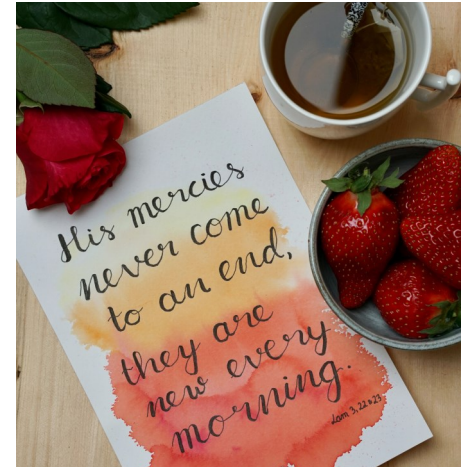 His mercies
never come
to an end,
they are
new every
morning.
Lam 3,22+23